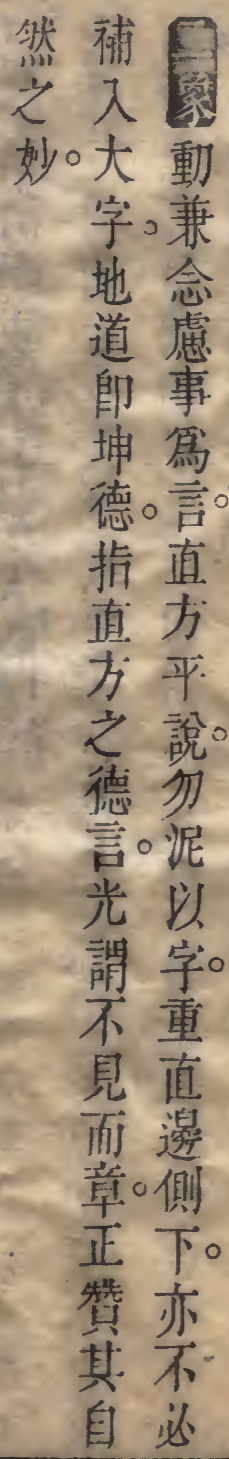 二象動兼念慮事爲言。直方平說。勿泥以字。重直邊側下。亦不必
補入大字。地道即坤德。指直方之德言。光謂不見而章。正贊其自
然之妙。